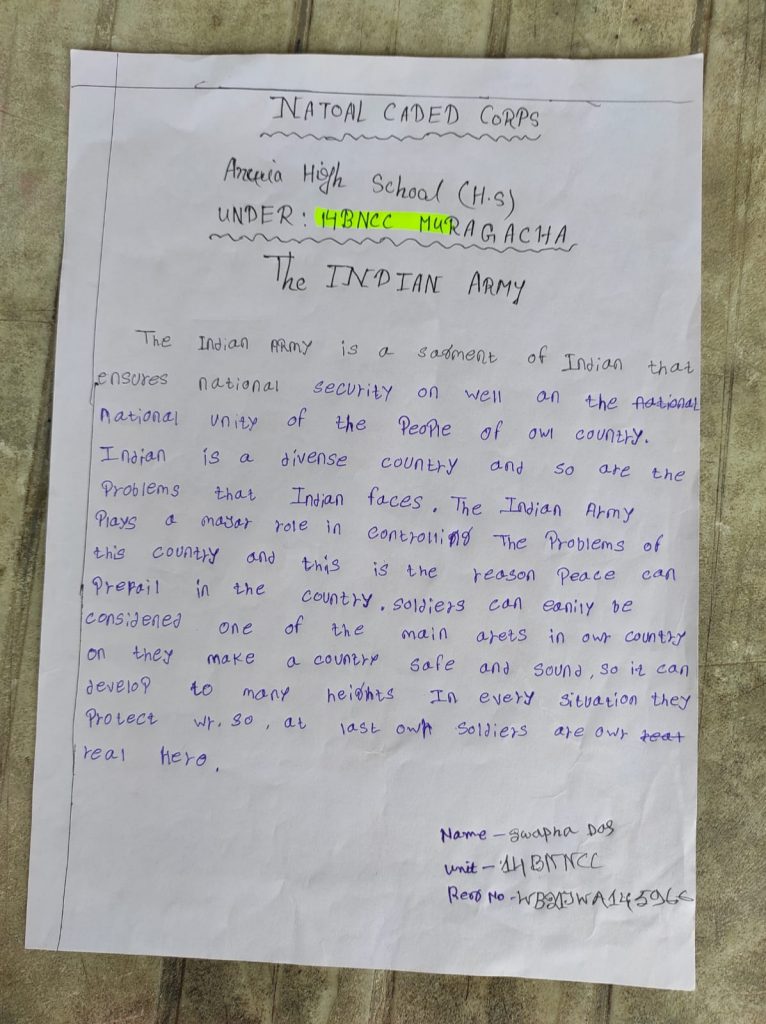 NATOAL CADED CORPS
High School (H.S)
UNDER: 14BNCC MURAGACHA
The INDIAN ARMY
The Indian ARMY is a sarment of Indian that
ensures national security on well an the national
national unity of the People of owl country.
Indian is a divense country and so are the
Problems that Indian faces. The Indian Army
Plays a mayar role in controlling The Problems of
this country and this is the reason Peace can
Prevail in the country. soldiers can eanily be
considened one of the main arets in owr country
on they make a country safe and sound, so it can
develop to many heights In every situation they
Protect wr. so, at last own soldiers are owr real
real Hero.
Name - Swapna Das
unit - 14 BNNCC